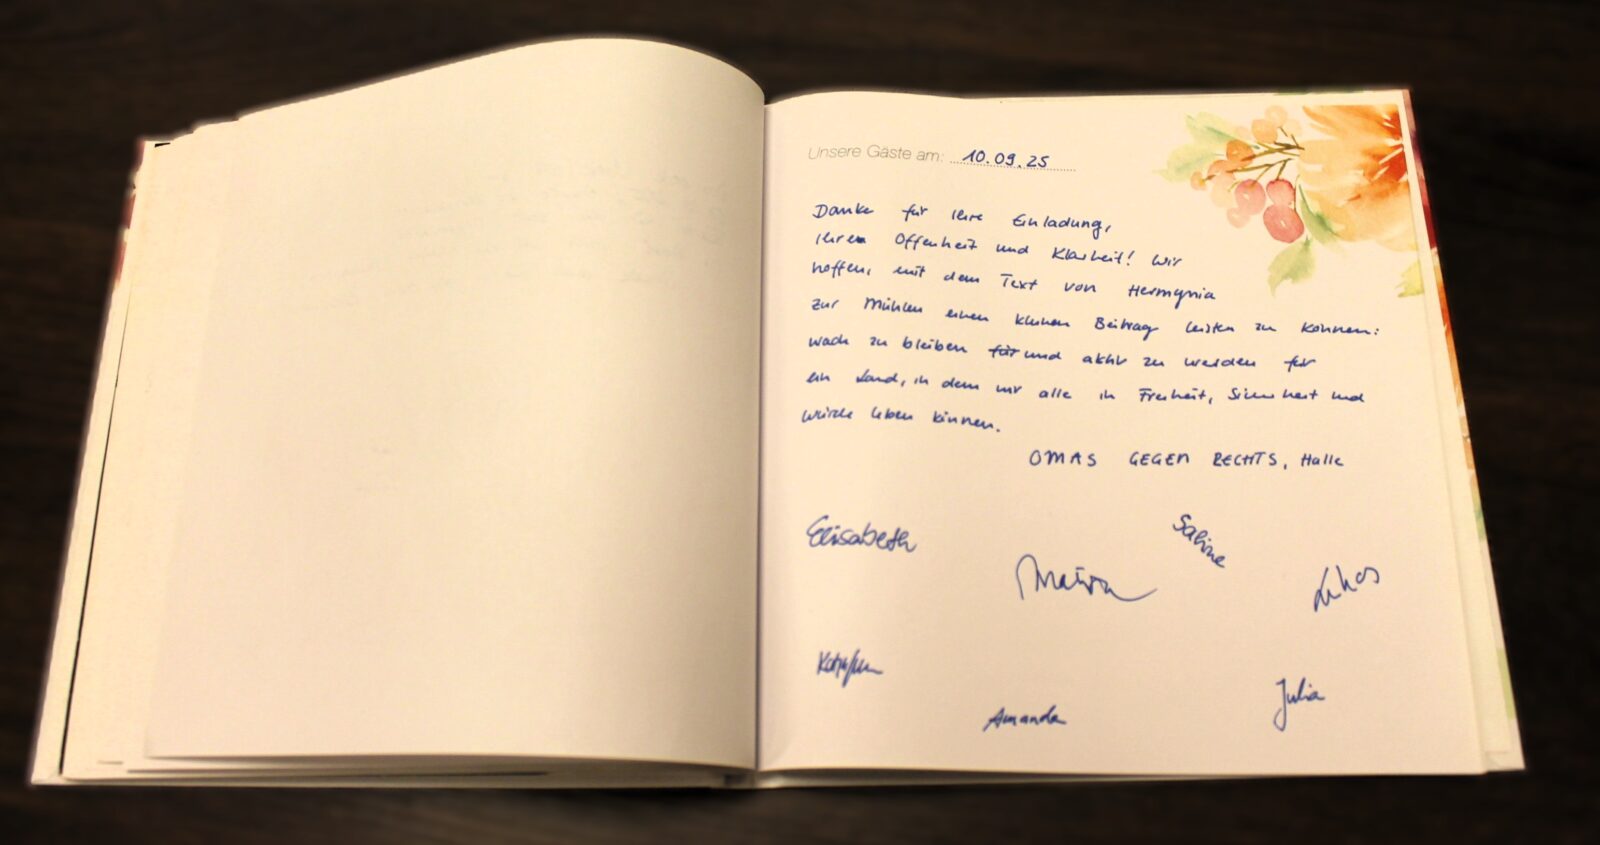 Unsere Gäste am: 10.09.25
Danke für Ihre Einladung,
Ihre Offenheit und Klarheit! Wir
hoffen, mit dem Text von Hermynia
zur Mühlen einen kleinen Beitrag leisten zu können:
wach zu bleiben für und aktiv zu werden für
ein Land, in dem wir alle in Freiheit, Sicherheit und
Würde leben können.
OMAS GEGEN RECHTS, Halle
Elisabeth
Sabine
Amanda
Julia